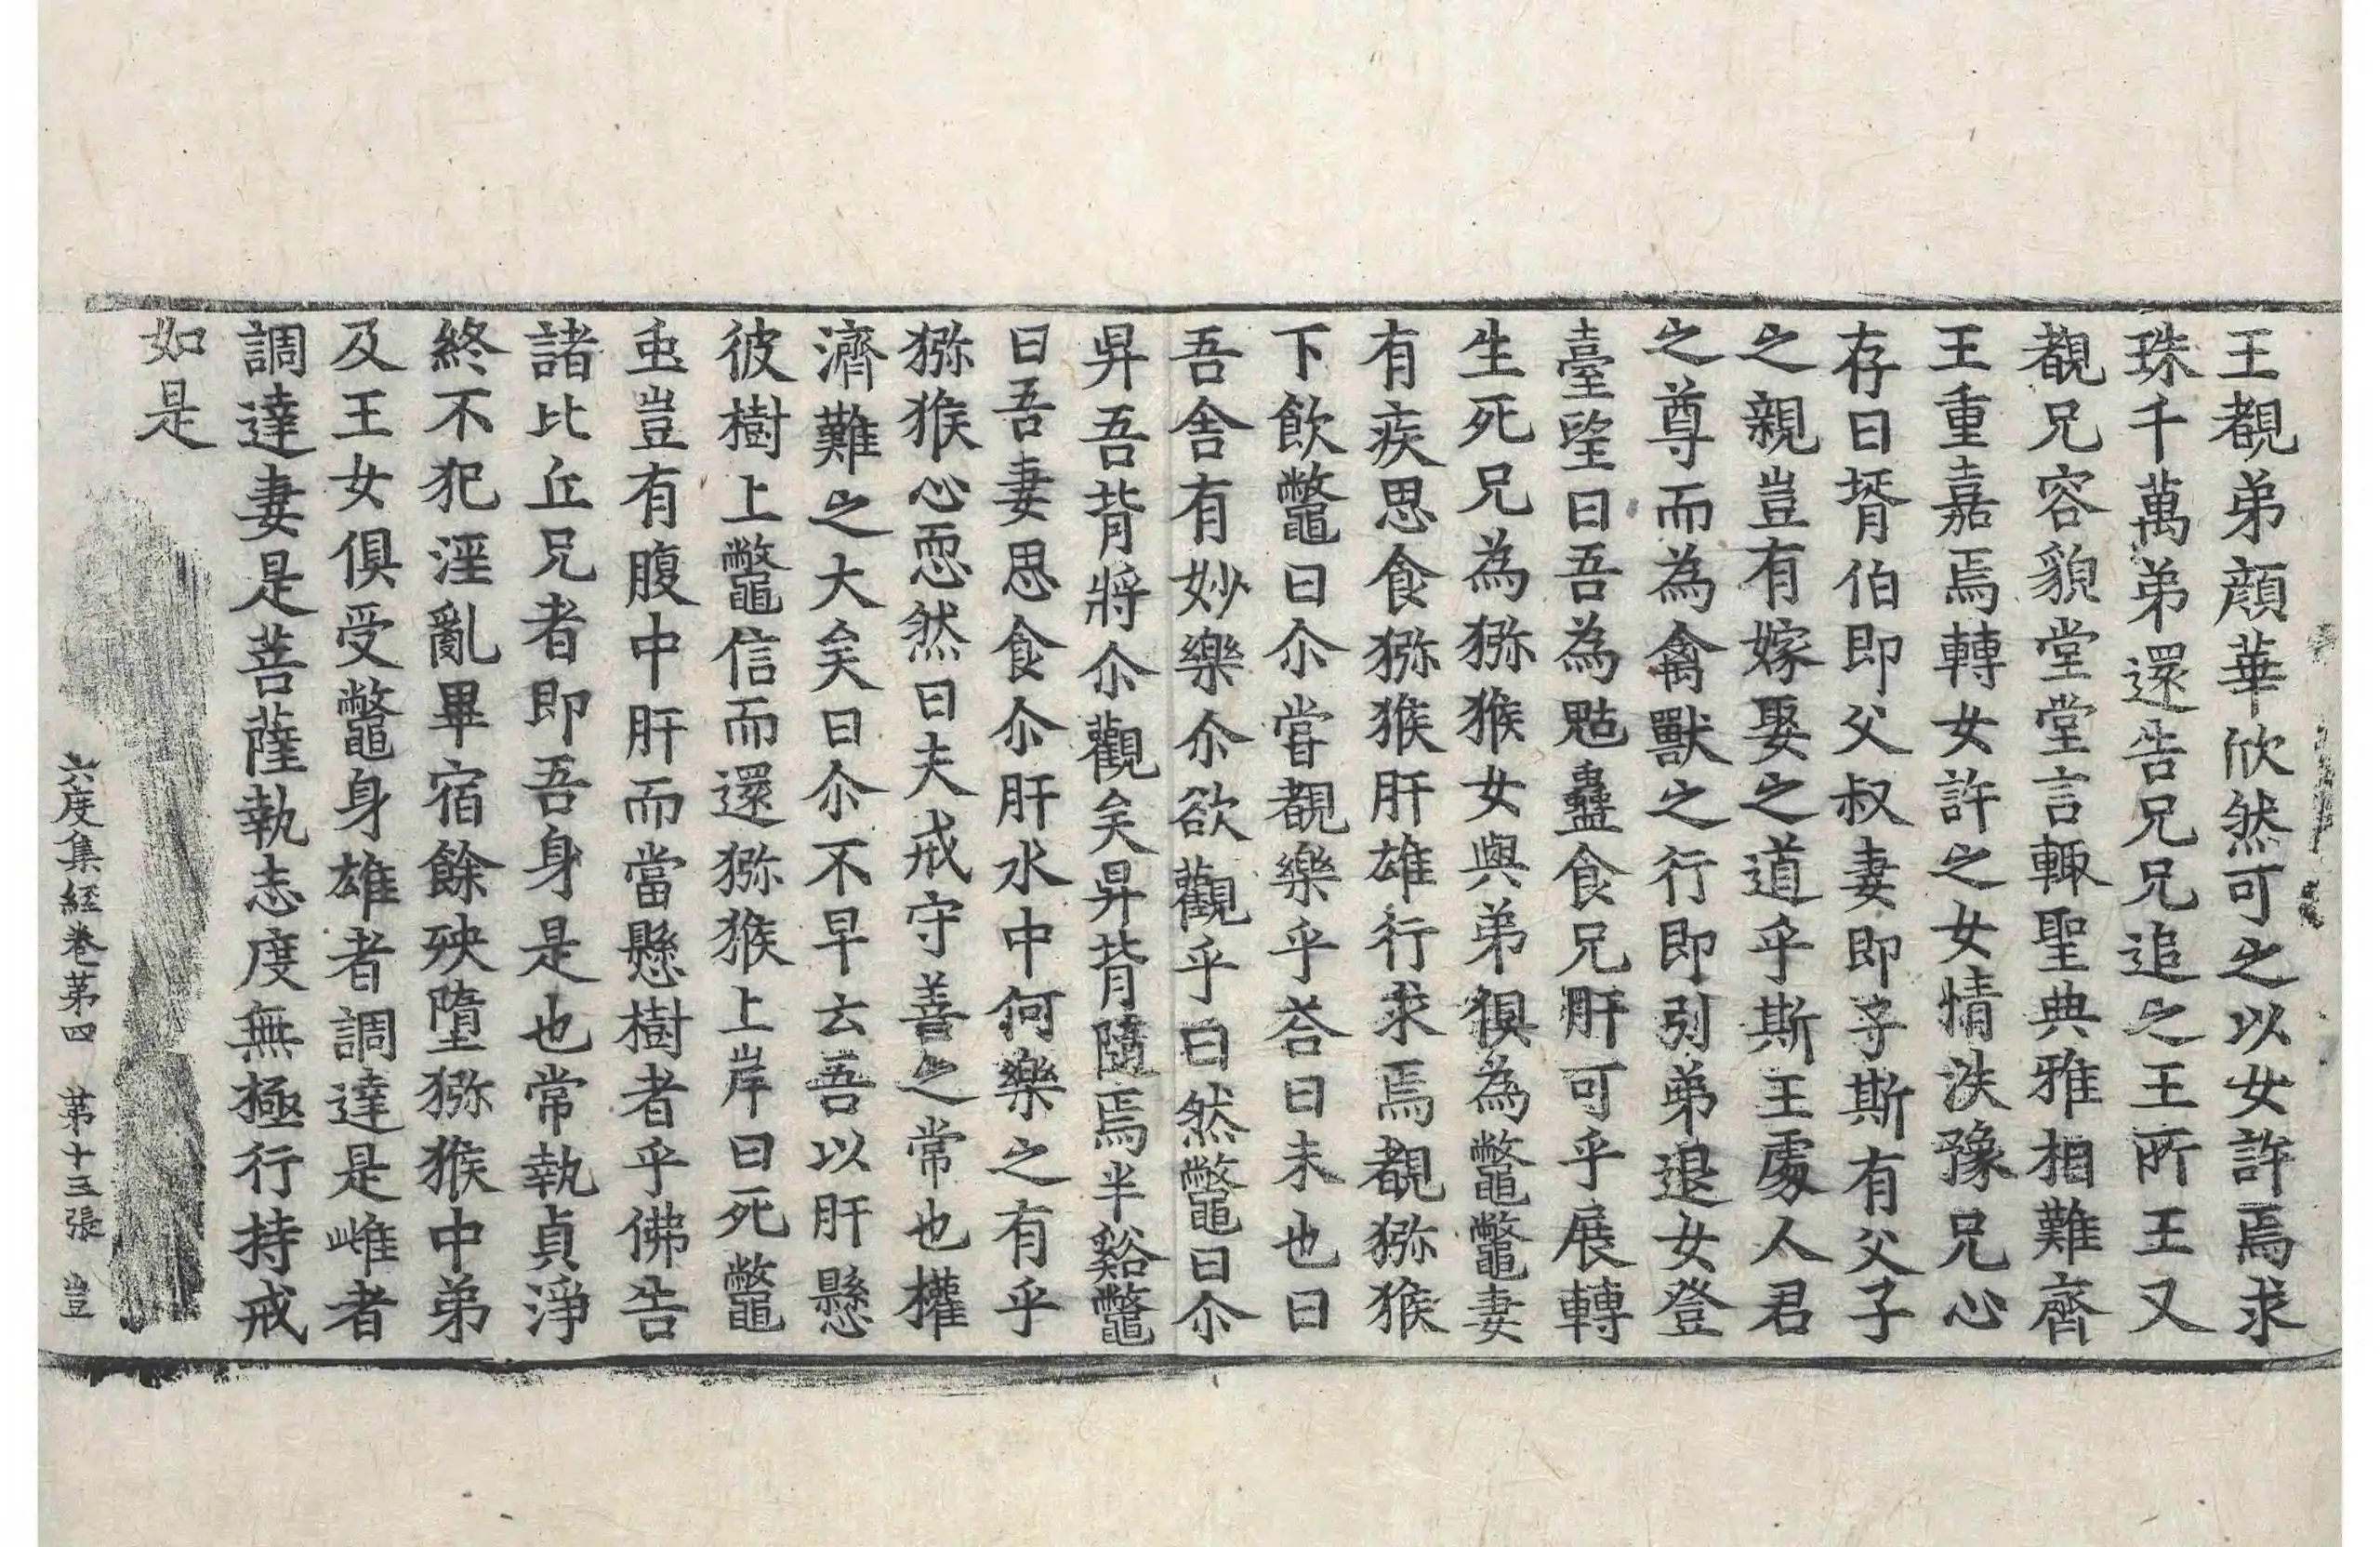 王覩弟顔華欣然可之以女許焉求
珠千萬弟還告兄兄追之王所王又
覩兄容貌堂堂言輙聖典雅相難齊
王重嘉焉轉女許之女情泆豫兄心
存曰壻伯即父叔妻即子斯有父子
之親豈有嫁娶之道乎斯王處人君
之尊而為禽獸之行即引弟退女登
臺望曰吾為魅蠱食兄肝可乎展轉
生死兄為獼猴女與弟俱為鼈鼈妻
有疾思食獼猴肝雄行求焉覩獼猴
下飲鼈曰尒嘗覩樂乎荅曰未也曰
吾舍有妙樂尒欲觀乎曰然鼈曰尒
昇吾背將尒觀矣昇背隨焉半谿鼈
曰吾妻思食尒肝水中何樂之有乎
獼猴心恧然曰夫戒守善之常也權
濟難之大矣曰尒不早云吾以肝懸
彼樹上鼈信而還獼猴上岸曰死鼈
䖝豈有腹中肝而當懸樹者乎佛告
諸比丘兄者即吾身是也常執貞淨
終不犯淫亂畢宿餘殃墮獼猴中弟
及王女俱受鼈身雄者調達是雌者
調達妻是菩薩執志度無極行持戒
如是
六度集経卷第四 第十三張 豈